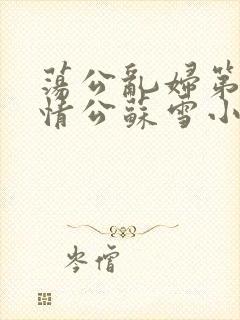 蕩公亂婦第
情公蘇雪小
岑僧